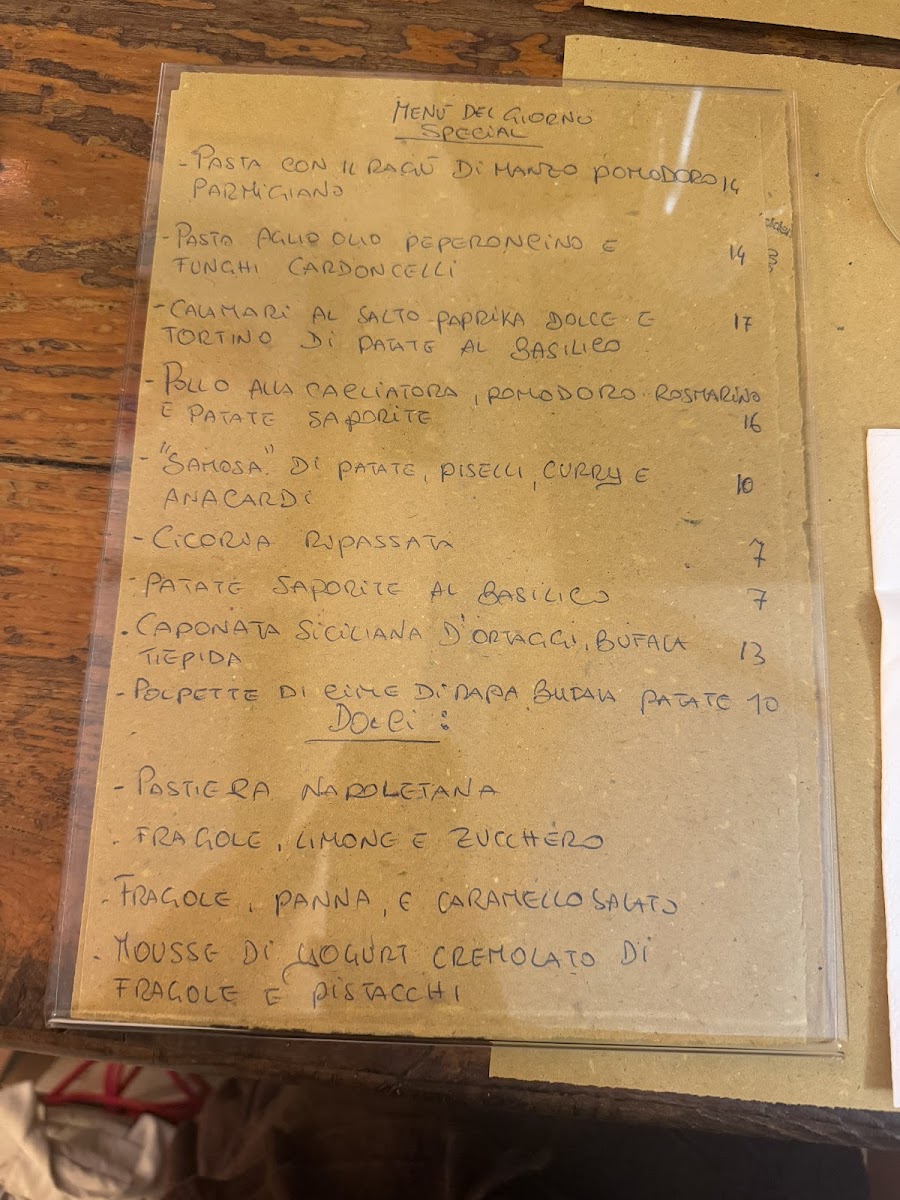 MENÙ DEL GIORNO
SPECIAL
- PASTA CON IL RAGÙ DI MANZO POMODORO 14
PARMIGIANO
- PASTA AGLIO OLIO PEPERONCINO E 14
FUNGHI CARDONCELLI
- CALAMARI AL SALTO PAPRIKA DOLCE E 17
TORTINO DI PATATE AL BASILICO
- POLLO ALLA CACCIATORA, POMODORO ROSMARINO
E PATATE SAPORITE 16
- "SAMOSA" DI PATATE, PISELLI, CURRY E 10
ANACARDI
- CICORIA RIPASSATA 7
- PATATE SAPORITE AL BASILICO 7
. CAPONATA SICILIANA D'ORTAGGI, BUFALA 13
TIEPIDA
- POLPETTE DI CIME DI RAPA BUFALA PATATE 10
DOLCI :
- PASTIERA NAPOLETANA
. FRAGOLE, LIMONE E ZUCCHERO
- FRAGOLE, PANNA, E CARAMELLO SALATO
. MOUSSE DI YOGURT CREMOLATO DI
FRAGOLE E PISTACCHI